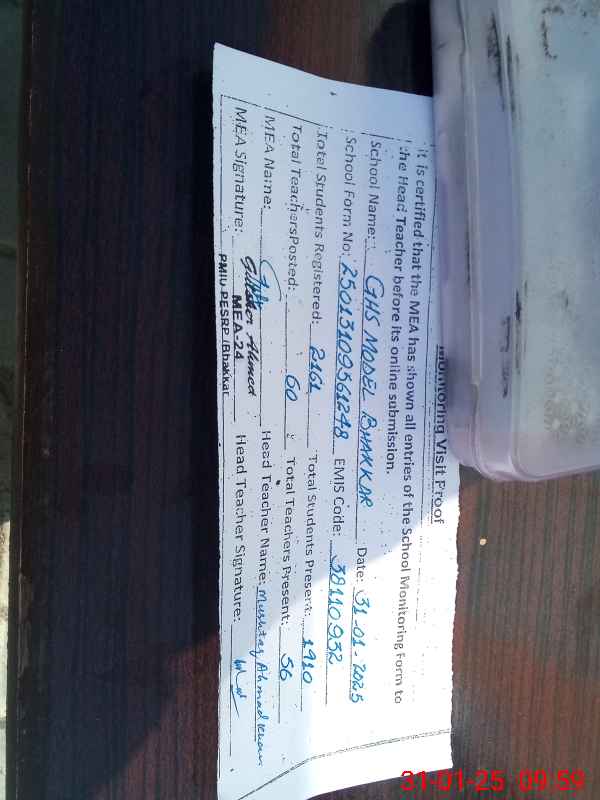 Monitoring Visit Proof
It is certified that the MEA has shown all entries of the School Monitoring Form to
the Head Teacher before its online submission.
School Name: GHS MODEL BHAKKAR Date: 31.01.2025
School Form No: 25013109561248 EMIS Code: 38110932
Total Students Registered: 2161 Total Students Present: 1910
Total TeachersPosted: 60 Total Teachers Present: 56
MEA Name: Head Teacher Name: Mushtaq Ahmad Khan
MEA Signature: Head Teacher Signature:
Ahmed
MEA-24
PMIU-PESRP/Bhakkar
31-01-25 09:59